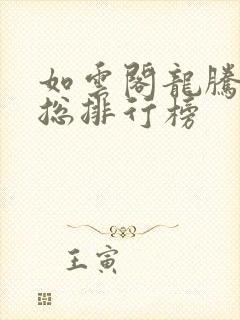 如雲閣龍騰
總排行榜
王寅